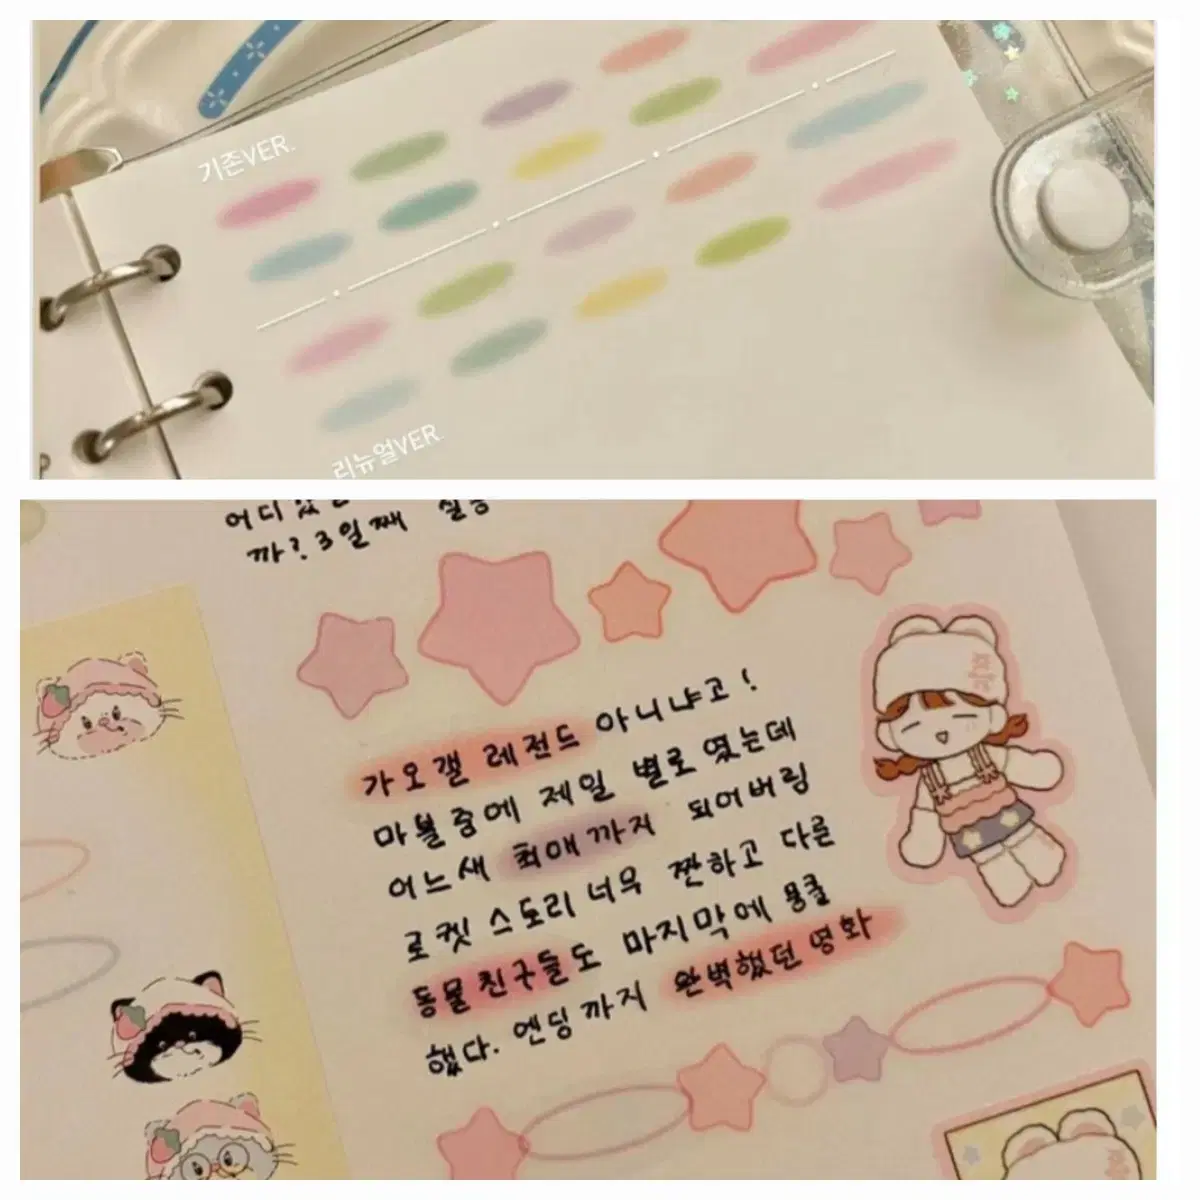 기존VER.
리뉴얼VER.
까? 3일째 실종
가오갤 레전드 아니냐고!
마블 중에 제일 별로였는데
어느새 최애까지 되어버림
로켓 스토리 너무 짠하고 다른
동물친구들도 마지막에 뭉클
했다. 엔딩까지 완벽했던 영화